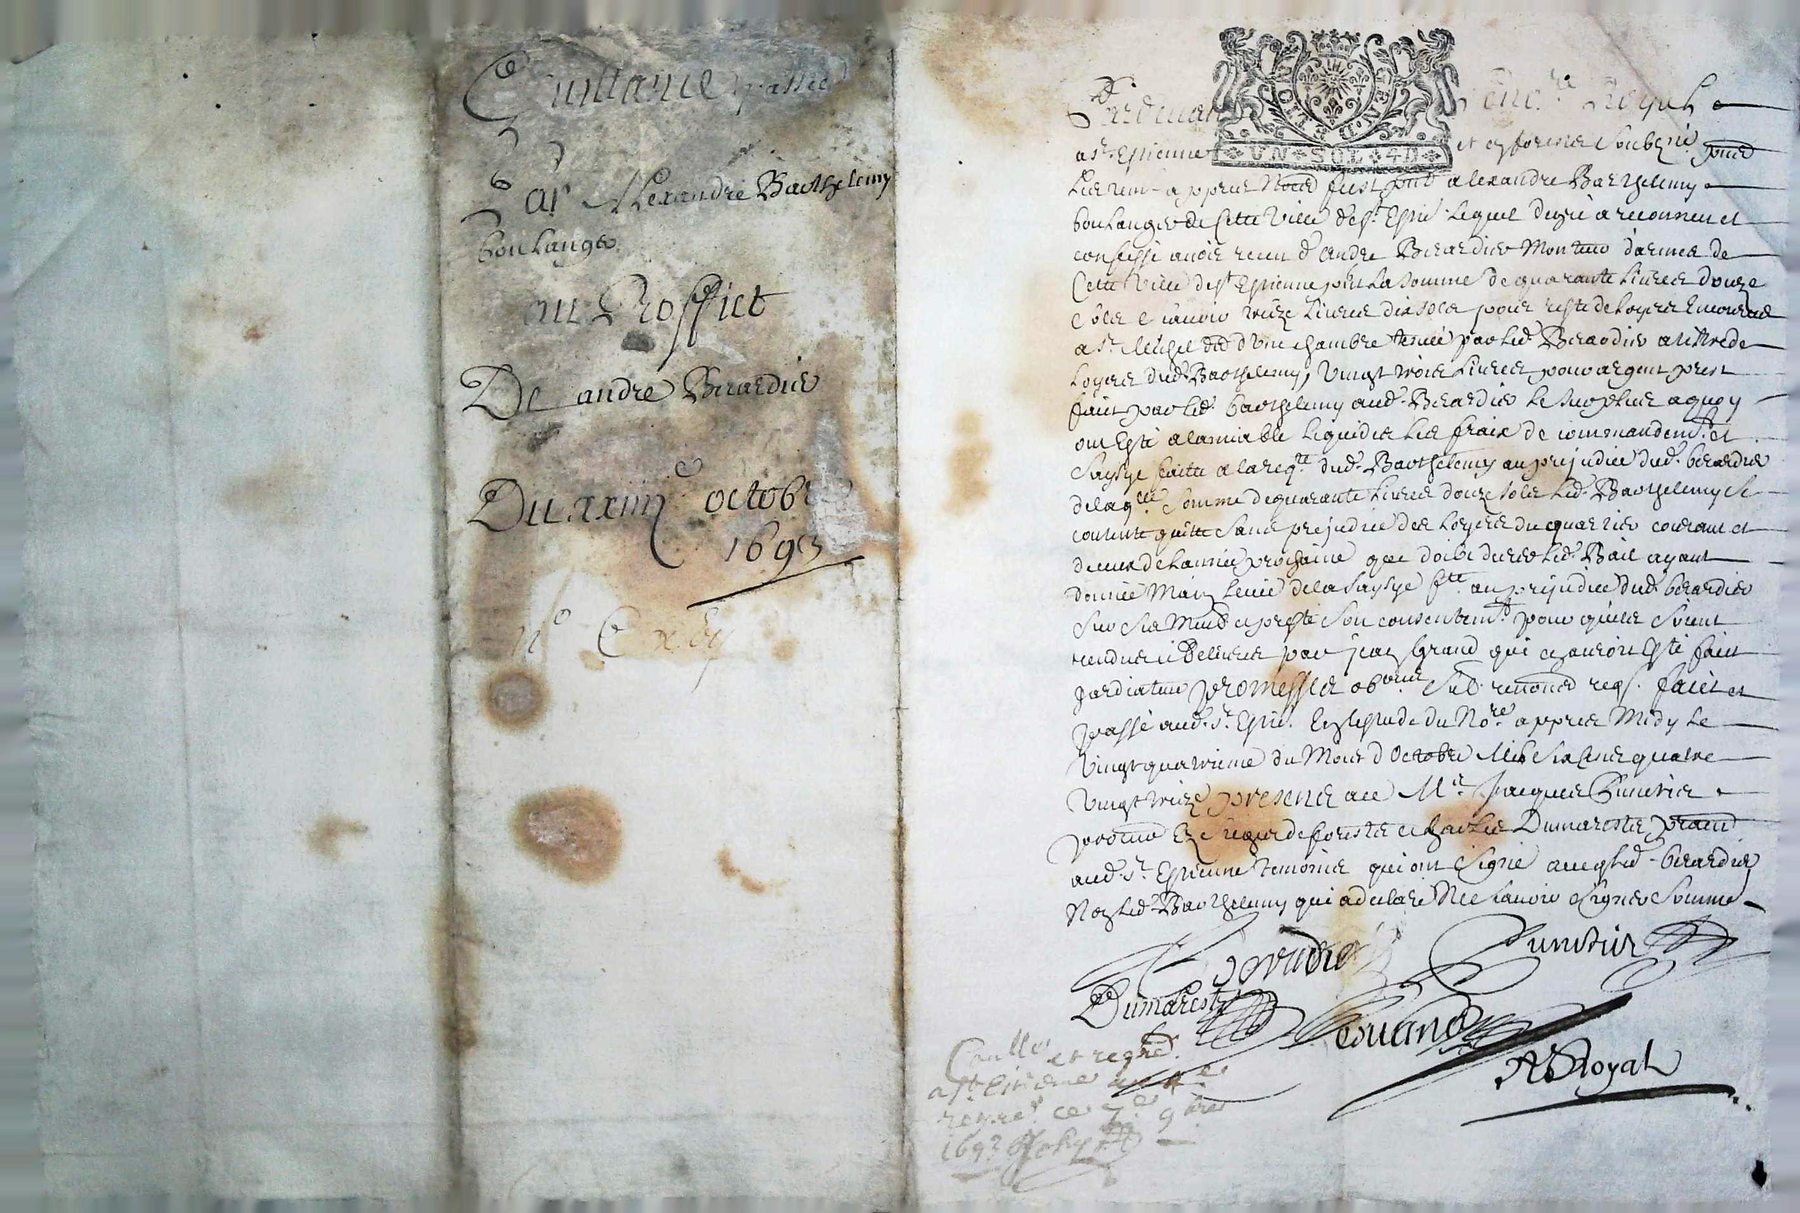 Quittance passée
Par Alexandre Barthelemy
boulanger
au Proffict
De andre Berardier
Du xxiiij octobre
1693
Pardevant Royal
a St. Estienne et
apres fust alexandre Barthelemy
boulanger de Cette Ville de St. Estne. Lequel de gré a reconneu et
confessé avoir receu d'andre Berardier Monteur d'armes de
Cette Ville de St Estienne La somme de quarante Livres douze
sols scavoir treize Livres dix sols pour reste de Loyers
a St. Michel d'une chambre tenue par led. Berardier a tiltre de
Loyers dud. Barthelemy, vingt trois Livres pour argent prest
fait par led. barthelemy aud. Berardier Le surplus a quoy
ont Esté a lamiable Liquidés Les fraix de commandemt. et
saysye faitte a la reqte. dud. Barthelemy au prejudice dud. berardier
de laqlle. somme de quarante Livres douze sols led. Barthelemy se
contente quitte sans prejudice des Loyers du quartier courant et
de ceux de Lannée prochaine que doibt durer led. Bail ayant
donné Main Levée de la saysye fte. au prejudice dud. berardier
sur ses Meubles presté son consentemt. pour quils soient
rendus et Delivrés par jean grand qui en avoit Esté fait
gardiateur promesses obons. renoned. faict et
passé aud. St. Estne. Estude du Nore. appres Midy Le
vingt quatrieme du Mois d'Octobre Mil six Cens quatre
vingt treize presence de Me. Jacques Cunitier
de forests et Dumarestz
aud. St. Estienne temoins qui ont signé avec led. berardier
Non led. Barthelemy qui a declaré Ne scavoir signer Sommé
Berardier Cunitier
Dumarestz
ARoyal
Conllé et regré.
a St Estienne
ce 7e 9bre
1693
UN SOL 4D